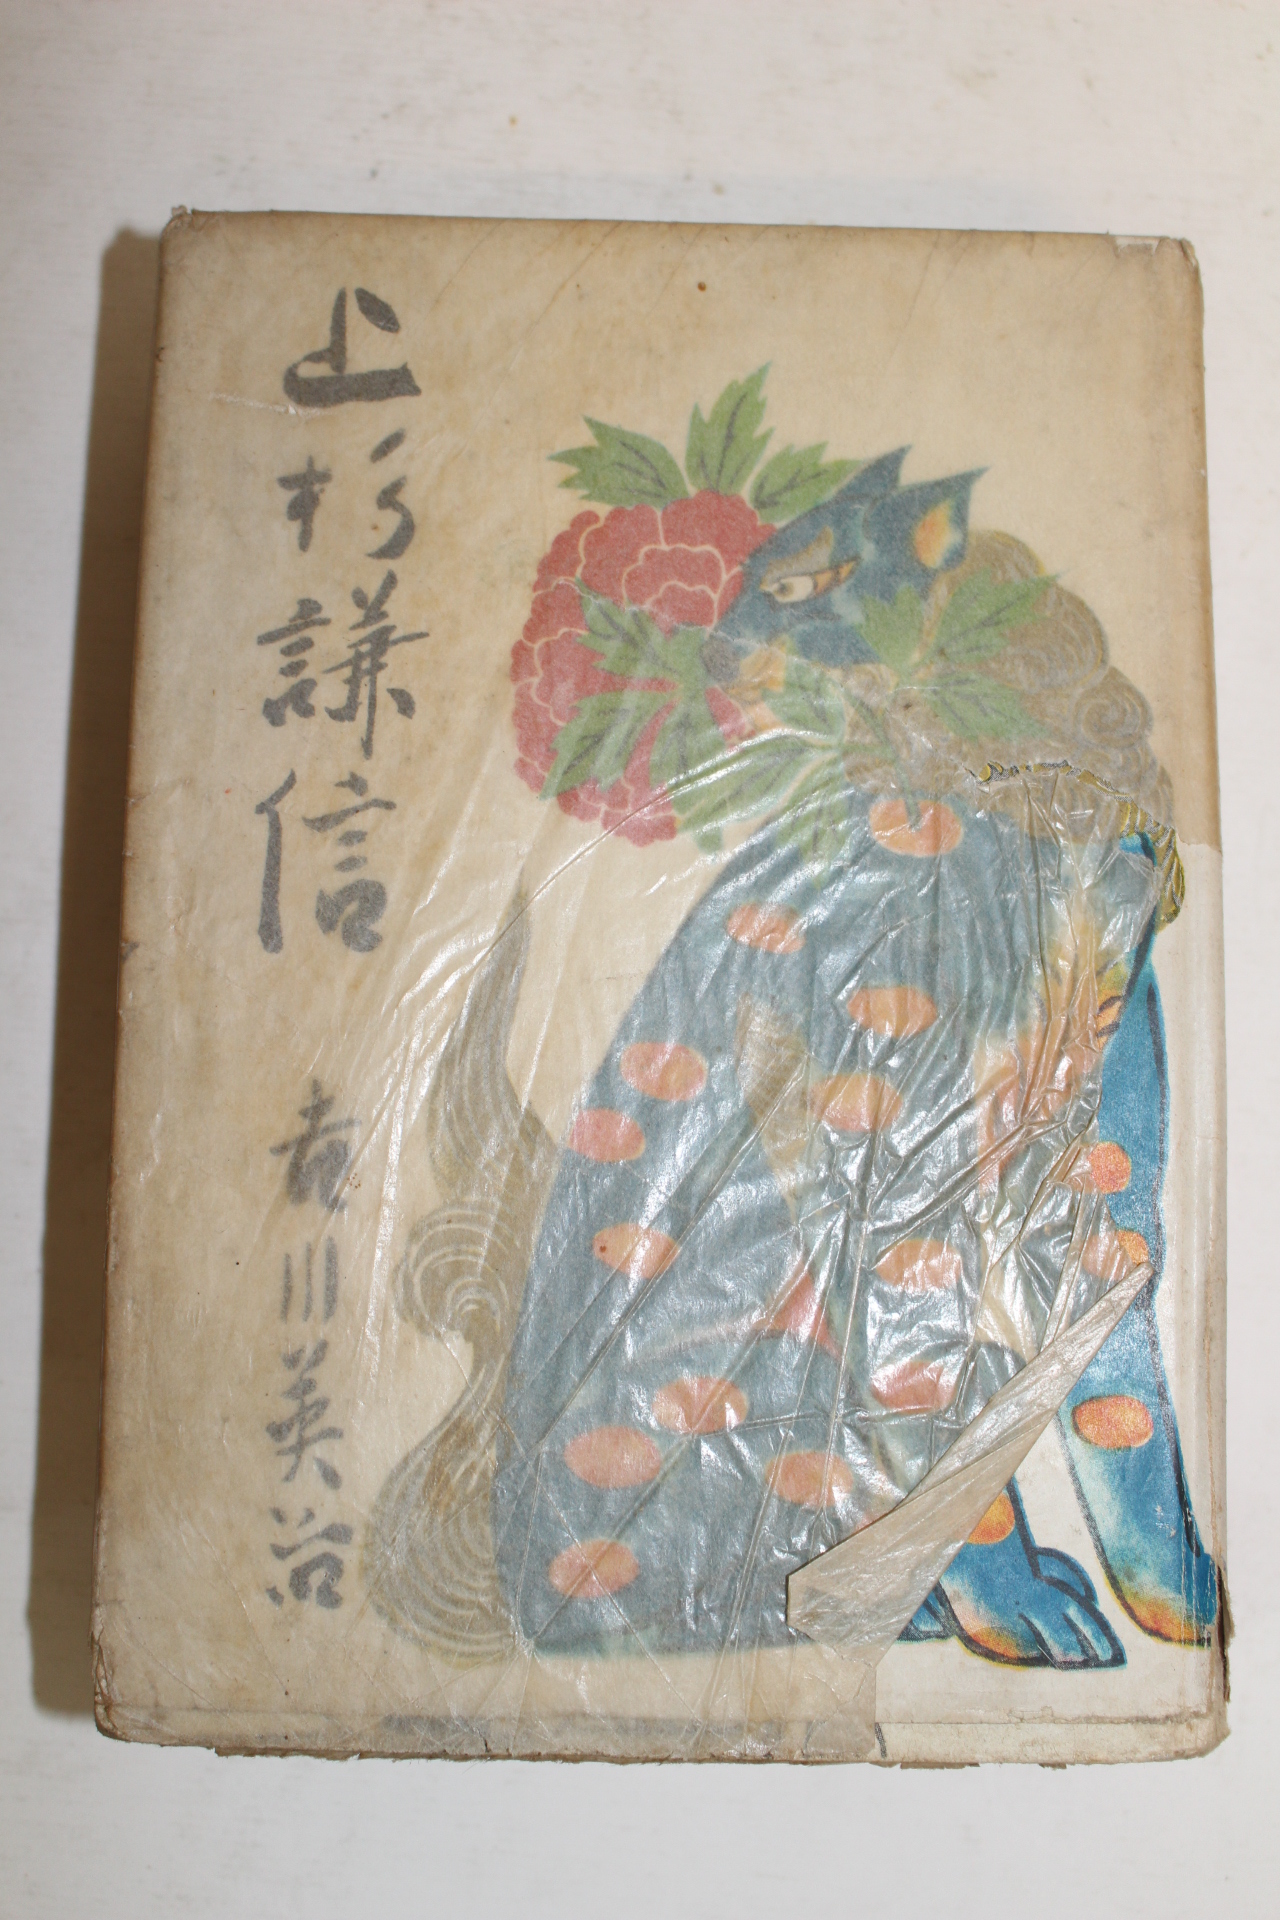 上杉謙信
吉川英治